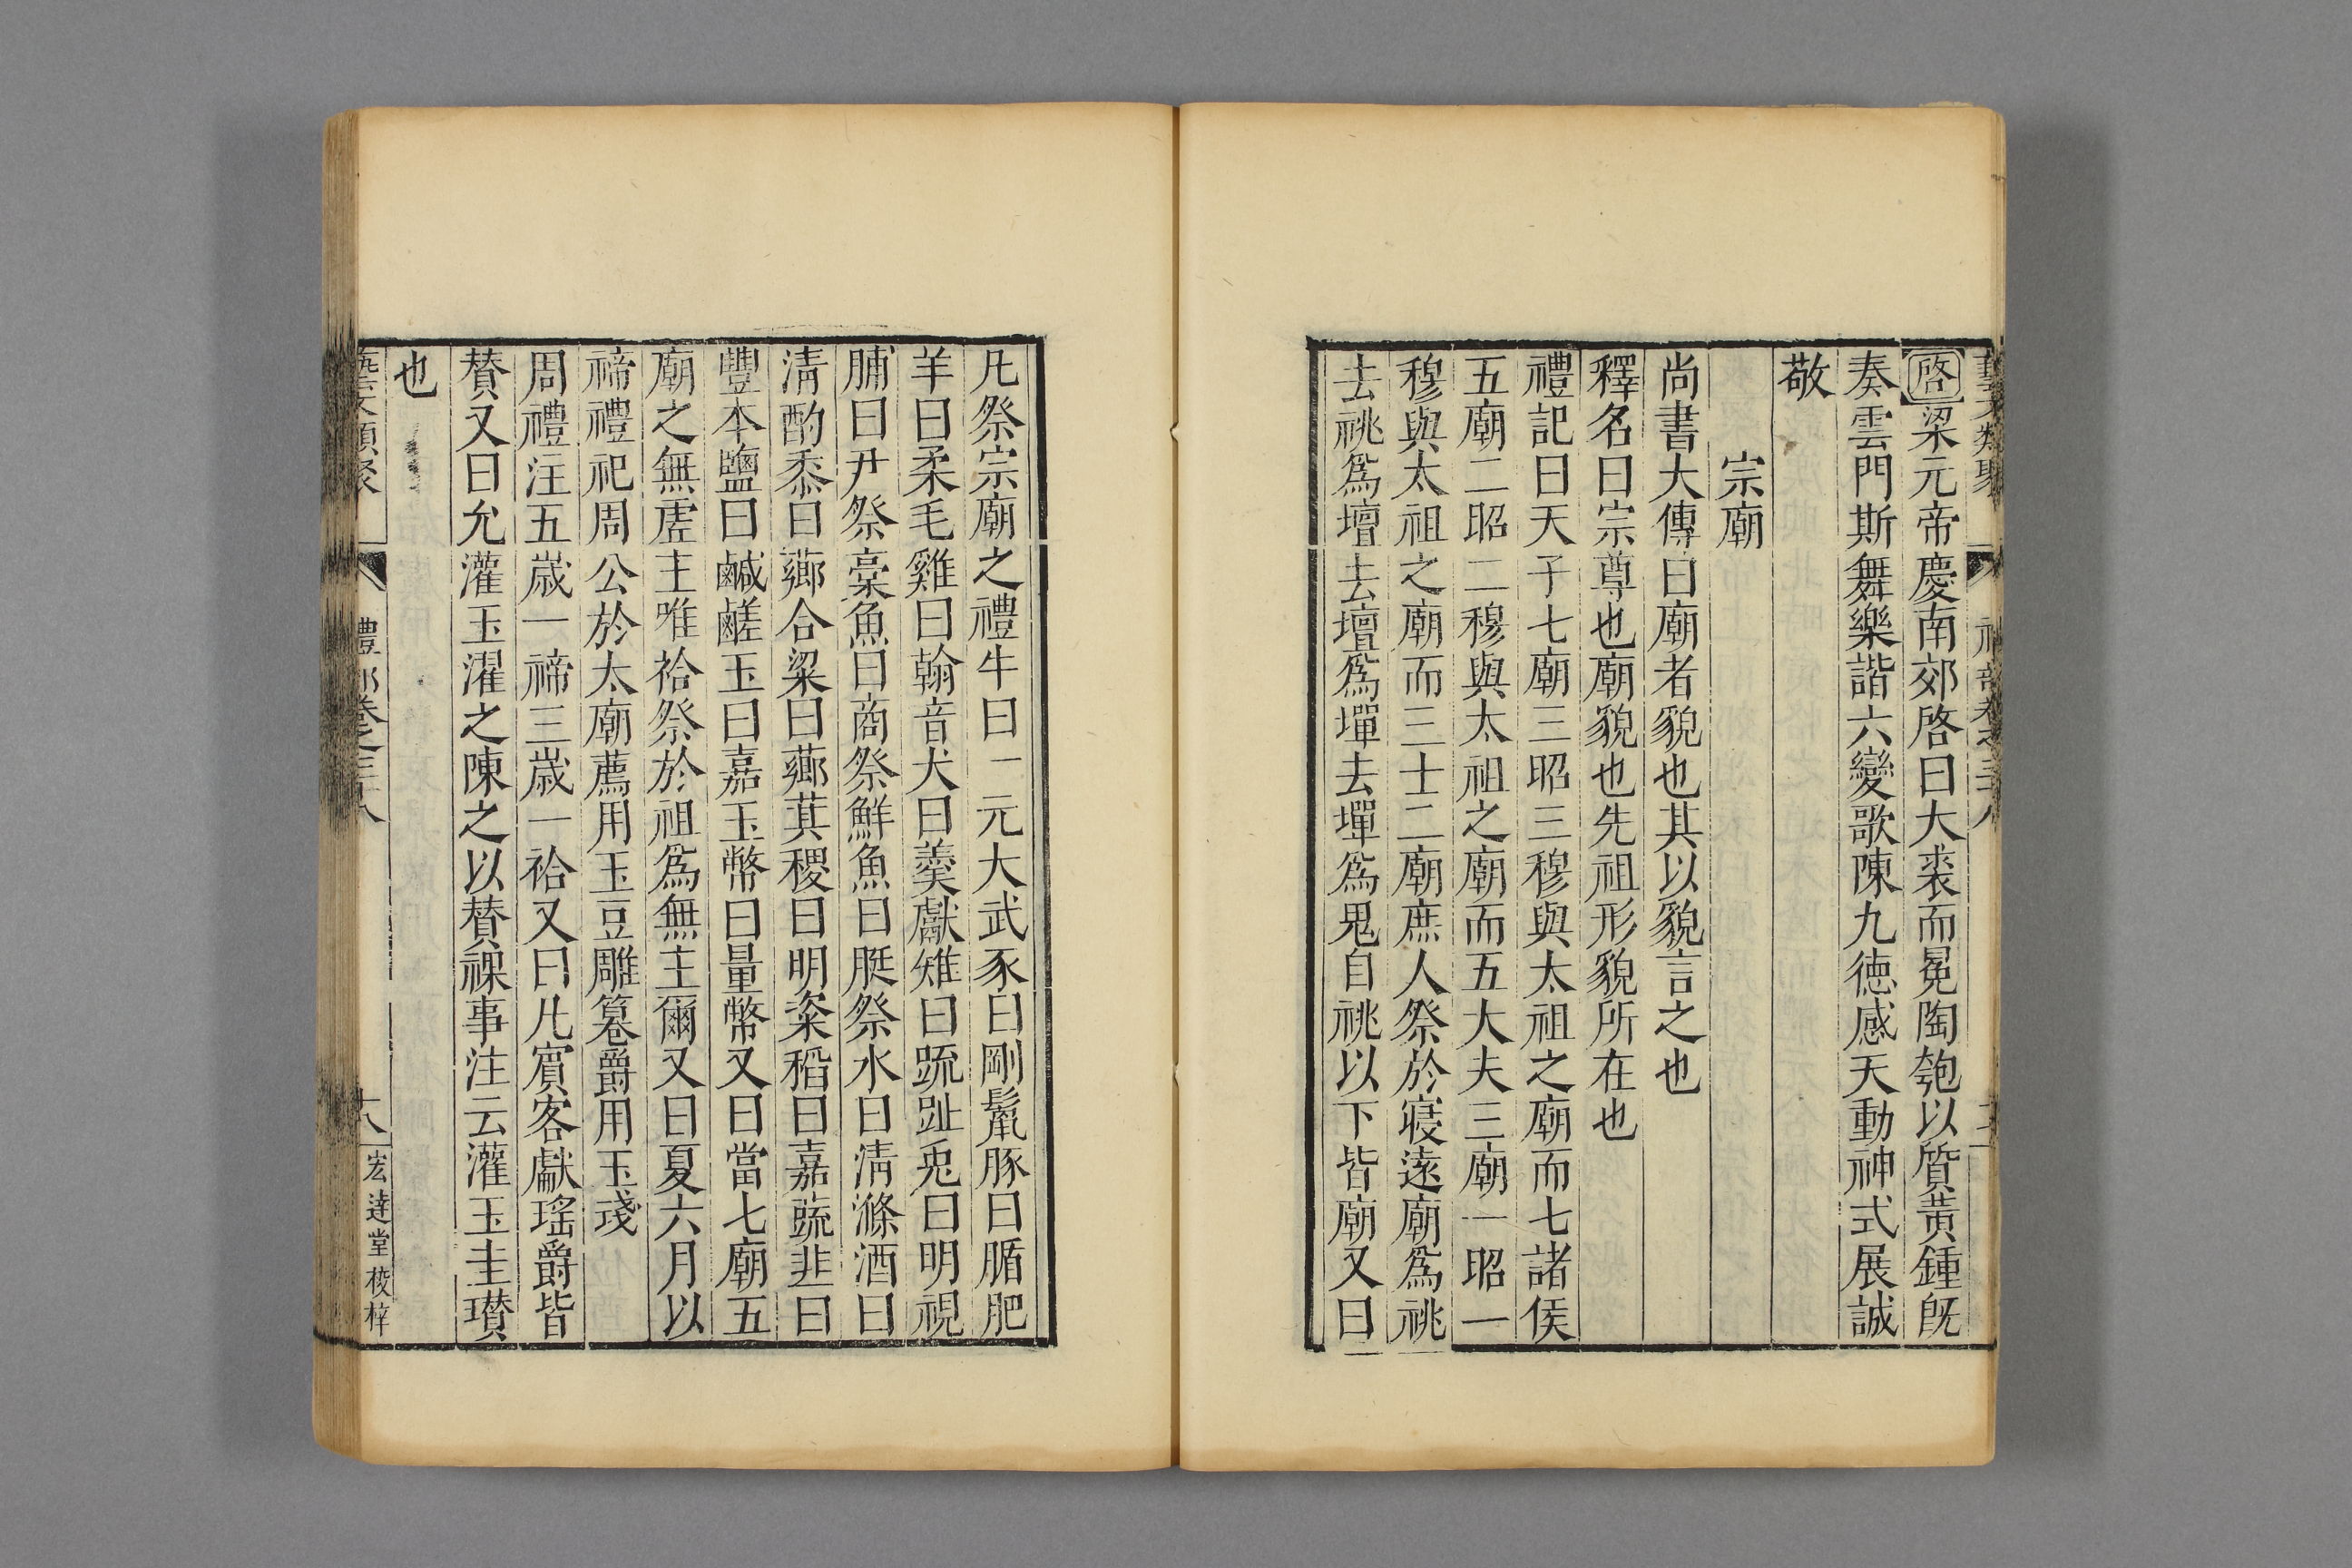 啓梁元帝慶南郊啓曰大裘而冕陶匏以質黃鍾旣
奏雲門斯舞樂諧六變歌陳九德感天動神式展誠
敬
宗廟
尚書大傳曰廟者貌也其以貌言之也
釋名曰宗尊也廟貌也先祖形貌所在也
禮記曰天子七廟三昭三穆與太祖之廟而七諸侯
五廟二昭二穆與太祖之廟而五大夫三廟一昭一
穆與太祖之廟而三士二廟庶人祭於寢遠廟爲祧
去祧爲壇去壇爲墠去墠爲鬼自祧以下皆廟又曰
凡祭宗廟之禮牛曰一元大武豕曰剛鬣豚曰腯肥
羊曰柔毛雞曰翰音犬曰羹獻雉曰䟽趾兎曰明視
脯曰尹祭槀魚曰商祭鮮魚曰脡祭水曰淸滌酒曰
淸酌黍曰薌合粱曰薌萁稷曰明粢稻曰嘉蔬韭曰
豐本鹽曰鹹鹺玉曰嘉玉幣曰量幣又曰當七廟五
廟之無虛主唯祫祭於祖爲無主爾又曰夏六月以
禘禮祀周公於太廟薦用玉豆雕篹爵用玉琖
周禮注五歲一禘三歲一祫又曰凡賓客獻瑤爵皆
賛又曰允灌玉濯之陳之以賛祼事注云灌玉圭瓚
也
藝文類聚
禮部卷之三十八
十八
宏達堂校梓